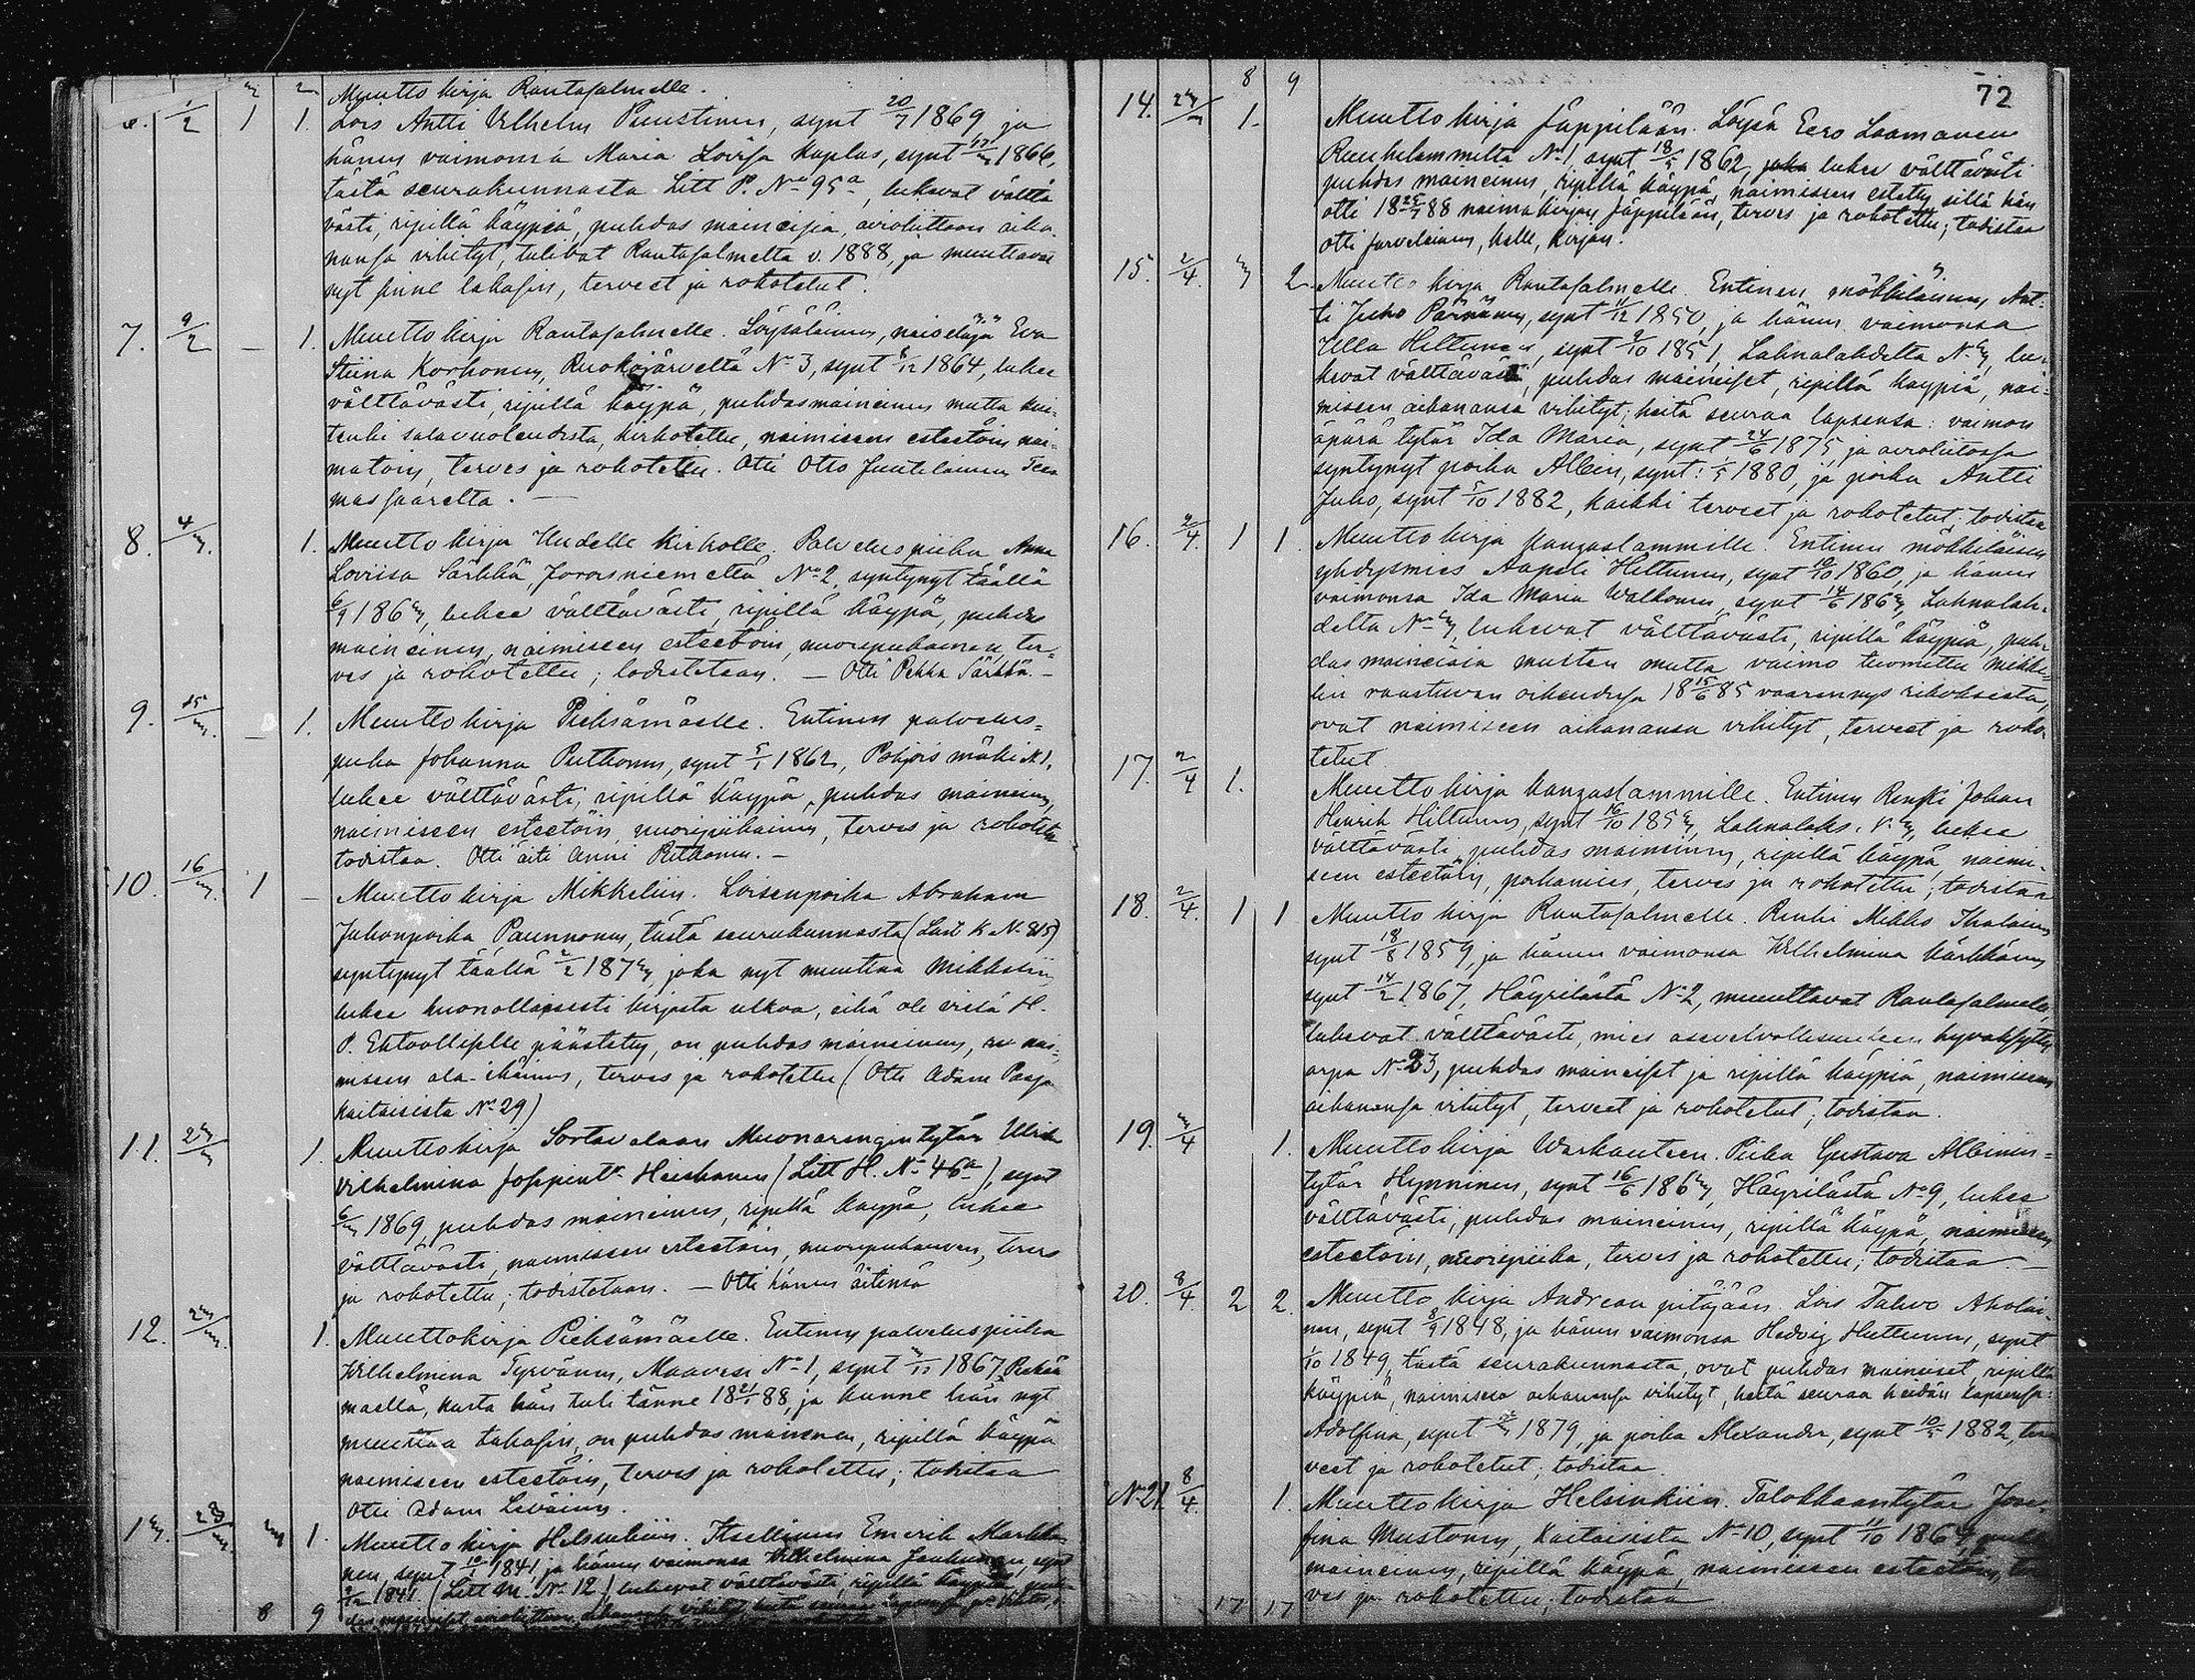 3 2 Muutto kirja Rantasalmelle.
6. 1/2 1 1. Lois Antti Vilhelm Puustinen, synt 20/7 1869 ja
hänen vaimonsa Maria Lovisa Kaplas, synt 1866,
tästä seurakunnasta Litt P. No 95a, lukevat välttä
västi, ripillä käypiä, puhdas maineisia, avioliittoon aika
nansa vihityt, tulivat Rantasalmelta v. 1888, ja muuttavat
nyt sinne takasin, terveet ja rokotetut.
7. 9/2 — 1. Muutto kirja Rantasalmelle. Löysäläinen, naiseläjä Eva
Stiina Korhonen, Ruokojärveltä No 3, synt 8/12 1864, lukee
välttävästi, ripillä käypä, puhdasmaineinen mutta kui-
tenki salavuoteudista, kirkotettu, naimiseen esteetöin nai-
matoin, terves ja rokotettu. Otti Otto Juutilainen Tee
massaarelta. —
8. 4/3. 1. Muutto kirja Uudelle Kirkolle. Palveluspiika Anna
Loviisa Särkkä, Joroisniemeltä No 2, syntynyt täällä
6/9 1863, lukee välttävästi, ripillä käypä, puhdas
maineinen, naimiseen esteetöin, nuoripiikainen, ter-
ves ja rokotettu; todistetaan. — Otti Pekka Särkkä. —
9. 15/3. — 1. Muutto kirja Pieksämäelle. Entinen palvelus-
piika Johanna Puttonen, synt 5/1 1862, Pohjois mäki N 1,
lukee välttävästi, ripillä käypä, puhdas maineinen,
naimiseen esteetöin, nuoripiikainen, terves ja rokotettu
todistaa. Otti äiti Anni Puttonen. —
10. 16/3. 1 — Muutto kirja Mikkeliin. Loisenpoika Abraham
Juhonpoika Paunnonen, tästä seurakunnasta (Litt K No 815)
syntynyt täällä 2/2 1873, joka nyt muuttaa Mikkeliin,
lukee huonollaisesti kirjasta ulkoa, eikä ole vielä H.
P. Ehtoolliselle päästetty, on puhdas maineinen, nai-
miseen ala-ikäinen, terves ja rokotettu (Otti Adam Pasja
Kaitaisista No 29)
11. 23/3 1. Muuttokirja Sortavalaan Muonarengin tytär Ulrika
Vilhelmina Heiskanen (Litt H. No 46a), synt
6/3 1869, puhdas maineinen, ripillä käypä, lukee
välttävästi, naimiseen esteetöin, nuoripiikainen, terves
ja rokotettu; todistetaan. — Otti hänen äitinsä
12. 23/3. 1. Muuttokirja Pieksämäelle. Entinen palveluspiika
Wilhelmina Tyrvänen, Maavesi No 1, synt 3/11 1867 Pieksä
maella, kusta hän tuli tänne 18 21/1 88, ja kunne hän nyt
muuttaa takasin, on puhdas mainen, ripillä käypä
naimiseen esteetöin, terves ja rokotettu; todistaa
Otti Adam Leväinen.
13. 23/3. 3 1. Muutto kirja Helsinkiin. Itsellinen Emerik Markka-
nen, synt 10/1 1841, ja hänen vaimonsa Wilhelmina, synt
2/12 1841. (Litt M. No 12) lukevat välttävästi, ripillä käypiä, puh-
8 9
72
8 9
14. 23/3 1. Muutto kirja Jäppilään. Löysä Eero Laamanen
Ruuhilammilta No 1, synt 18/5 1862, joka lukee välttävästi
puhdas maineinen, ripillä käypä, naimiseen estetty sillä hän
otti 18 88 naimakirjan Jäppilään, terves ja rokotettu; todistaa
otti, Kalle, kirjan.
15. 2/4. 3 2. Muutto kirja Rantasalmelle. Entinen mökkiläinen Ant-
ti Juho Pärnänen, synt 11/12 1850, ja hänen vaimonsa
Ulla Hiltunen, synt 9/10 1851, Lahnalahdelta No 3, lu-
kevat välttävästi, puhdas maineiset, ripillä käypiä, nai-
miseen aikanansa vihityt; heitä seuraa lapsensa: vaimon
äpärä tytär Ida Maria, synt 24/6 1875, ja avioliitossa
syntynyt poika Albin, synt: 1/5 1880, ja poika Antti
Juho, synt 5/10 1882, kaikki terveet ja rokotetut; todistaa
16. 2/4. 1 1. Muutto kirja Kangaslammille. Entinen mökkiläisen
yhdysmies Aapeli Hiltunen, synt 1860, ja hänen
vaimonsa Ida Maria Walkonen, synt 14/6 1863, Lahnalah-
delta No 3, lukevat välttävästi, ripillä käypiä, puh-
das maineisia muuten mutta vaimo tuomittu Mikke-
lin raastuvan oikeudessa 18 15/6 85 varkauden rikoksesta,
ovat naimiseen aikanansa vihityt, terveet ja roko-
tetut
17. 2/4 1. Muutto kirja Kangaslammille. Entinen Renki Johan
Henrik Hiltunen, synt 16/10 1853, Lahnalaks. N. 3, lukee
välttävästi, puhdas maineinen, ripillä käypä, naimi-
seen esteetöin, poikamies, terves ja rokotettu; todistaa
18. 2/4. 1 1 Muutto kirja Rantasalmelle. Renki Mikko Ikäläinen
synt 18/8 1859, ja hänen vaimonsa Wilhelmina Kärkkänen
synt 14/2 1867, Häyrilästä No 2, muuttavat Rantasalmelle,
lukevat välttävästi, mies asevelvollisuuteen hyväksytty
arpa No 23, puhdas maineiset ja ripillä käypiä, naimiseen
aikanansa vihityt, terveet ja rokotetut; todistaa.
19. 3/4 1. Muutto kirja Warkauteen. Piika Gustava Albinin-
tytär Hynninen, synt 16/6 1863, Häyrilästä No 9, lukee
välttävästi, puhdas maineinen, ripillä käypä, naimiseen
esteetöin, nuoripiika, terves ja rokotettu; todistaa —
20. 8/4. 2 2. Muutto kirja Andrean pitäjään. Lois Tahvo Aholai-
nen, synt 8/9 1848, ja hänen vaimonsa Hedvig Huttunen, synt
1/10 1849, tästä seurakunnasta, ovat puhdas maineiset, ripillä
käypiä, naimiseen aikanansa vihityt, heitä seuraa heidän lapsensa:
Adolfina, synt 1879, ja poika Alexander, synt 10/5 1882, ter-
veet ja rokotetut; todistaa
No 21. 8/4. 1. Muutto kirja Helsinkiin. Talokkaantytär Jose-
fina Mustonen, Kaitaisista No 10, synt 11/10 1864, puhdas
maineinen, ripillä käypä, naimiseen esteetöin, ter-
ves ja rokotettu; todistaa
17 17